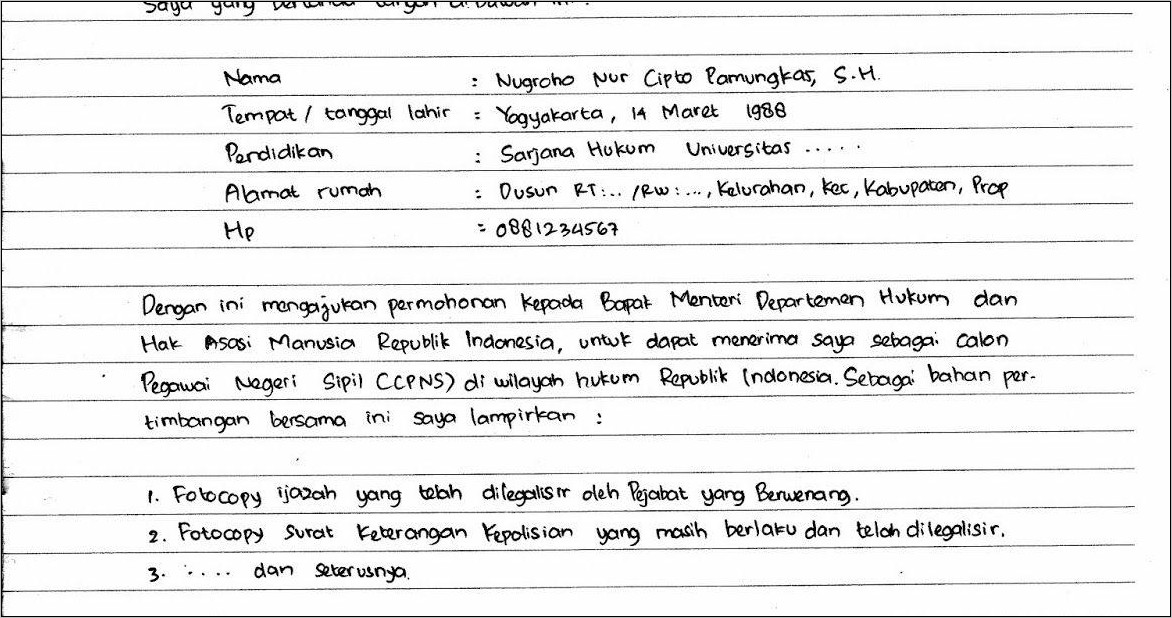 Saya yang bertanda tangan dibawah ini :
Nama : Nugroho Nur Cipto Pamungkas, S.H.
Tempat / tanggal lahir : Yogyakarta, 14 Maret 1988
Pendidikan : Sarjana Hukum Universitas .....
Alamat rumah : Dusun RT:.. /RW:..., Kelurahan, Kec, Kabupaten, Prop
Hp : 0881234567
Dengan ini mengajukan permohonan kepada Bapak Menteri Departemen Hukum dan
Hak Asasi Manusia Republik Indonesia, untuk dapat menerima saya sebagai Calon
Pegawai Negeri Sipil (CPNS) di wilayah hukum Republik Indonesia. Sebagai bahan per-
timbangan bersama ini saya lampirkan :
1. Fotocopy ijazah yang telah dilegalisir oleh Pejabat yang Berwenang.
2. Fotocopy Surat Keterangan Kepolisian yang masih berlaku dan telah dilegalisir.
3. ..... dan seterusnya.